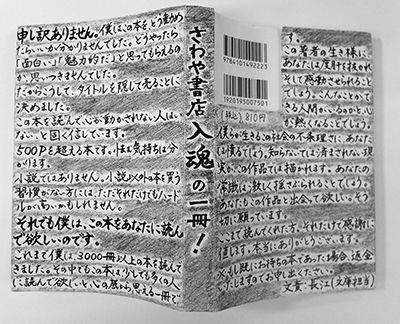 申し訳ありません。僕はこの本をどう勧め
たらいいか分かりませんでした。どうやったら
「面白い」「魅力的だ」と思ってもらえるの
か、思いつきませんでした。
だからこうして、タイトルを隠して売ることに
決めました。
この本を読んで心が動かされない人はい
ない、と固く信じています。
500Pを超える本です。怯む気持ちは分
かります。
小説ではありません。小説以外の本を買う
習慣がない方には、ただそれだけでもハード
ルが高いかもしれません。
それでも僕は、この本をあなたに読ん
で欲しいのです。
これまで僕は3000冊以上の本を読んで
きました。その中でもこの本は、少しでも多くの人
に読んで欲しいと心の底から思える一冊で
さわや書店 入魂の一冊!
9784101492223
1920195007501
(税込)810円
す。
この著者の生き様に、
あなたは度肝を抜かれ
そして感動させられることで
しょう。こんなことができ
る人間がいるのかと、心
が熱くなることでしょう
僕らが生きるこの社会の不条理さに、あなた
は憤るでしょう。知らないでは済まされない現
実が、この作品では描かれます。あなたの
常識は激しく揺さぶられることでしょう。
あなたもこの作品と出会って欲しい。そう
切に願っています。
ここまで読んでくれた方。それだけで感謝に
値します。本当にありがとうございます。
※もし既にお持ちの本であった場合、返金
いたしますのでお申し出ください。
文責:長江(文庫担当)